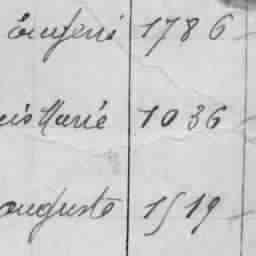 conferé 1786
is Marie 1036
auguste 1519